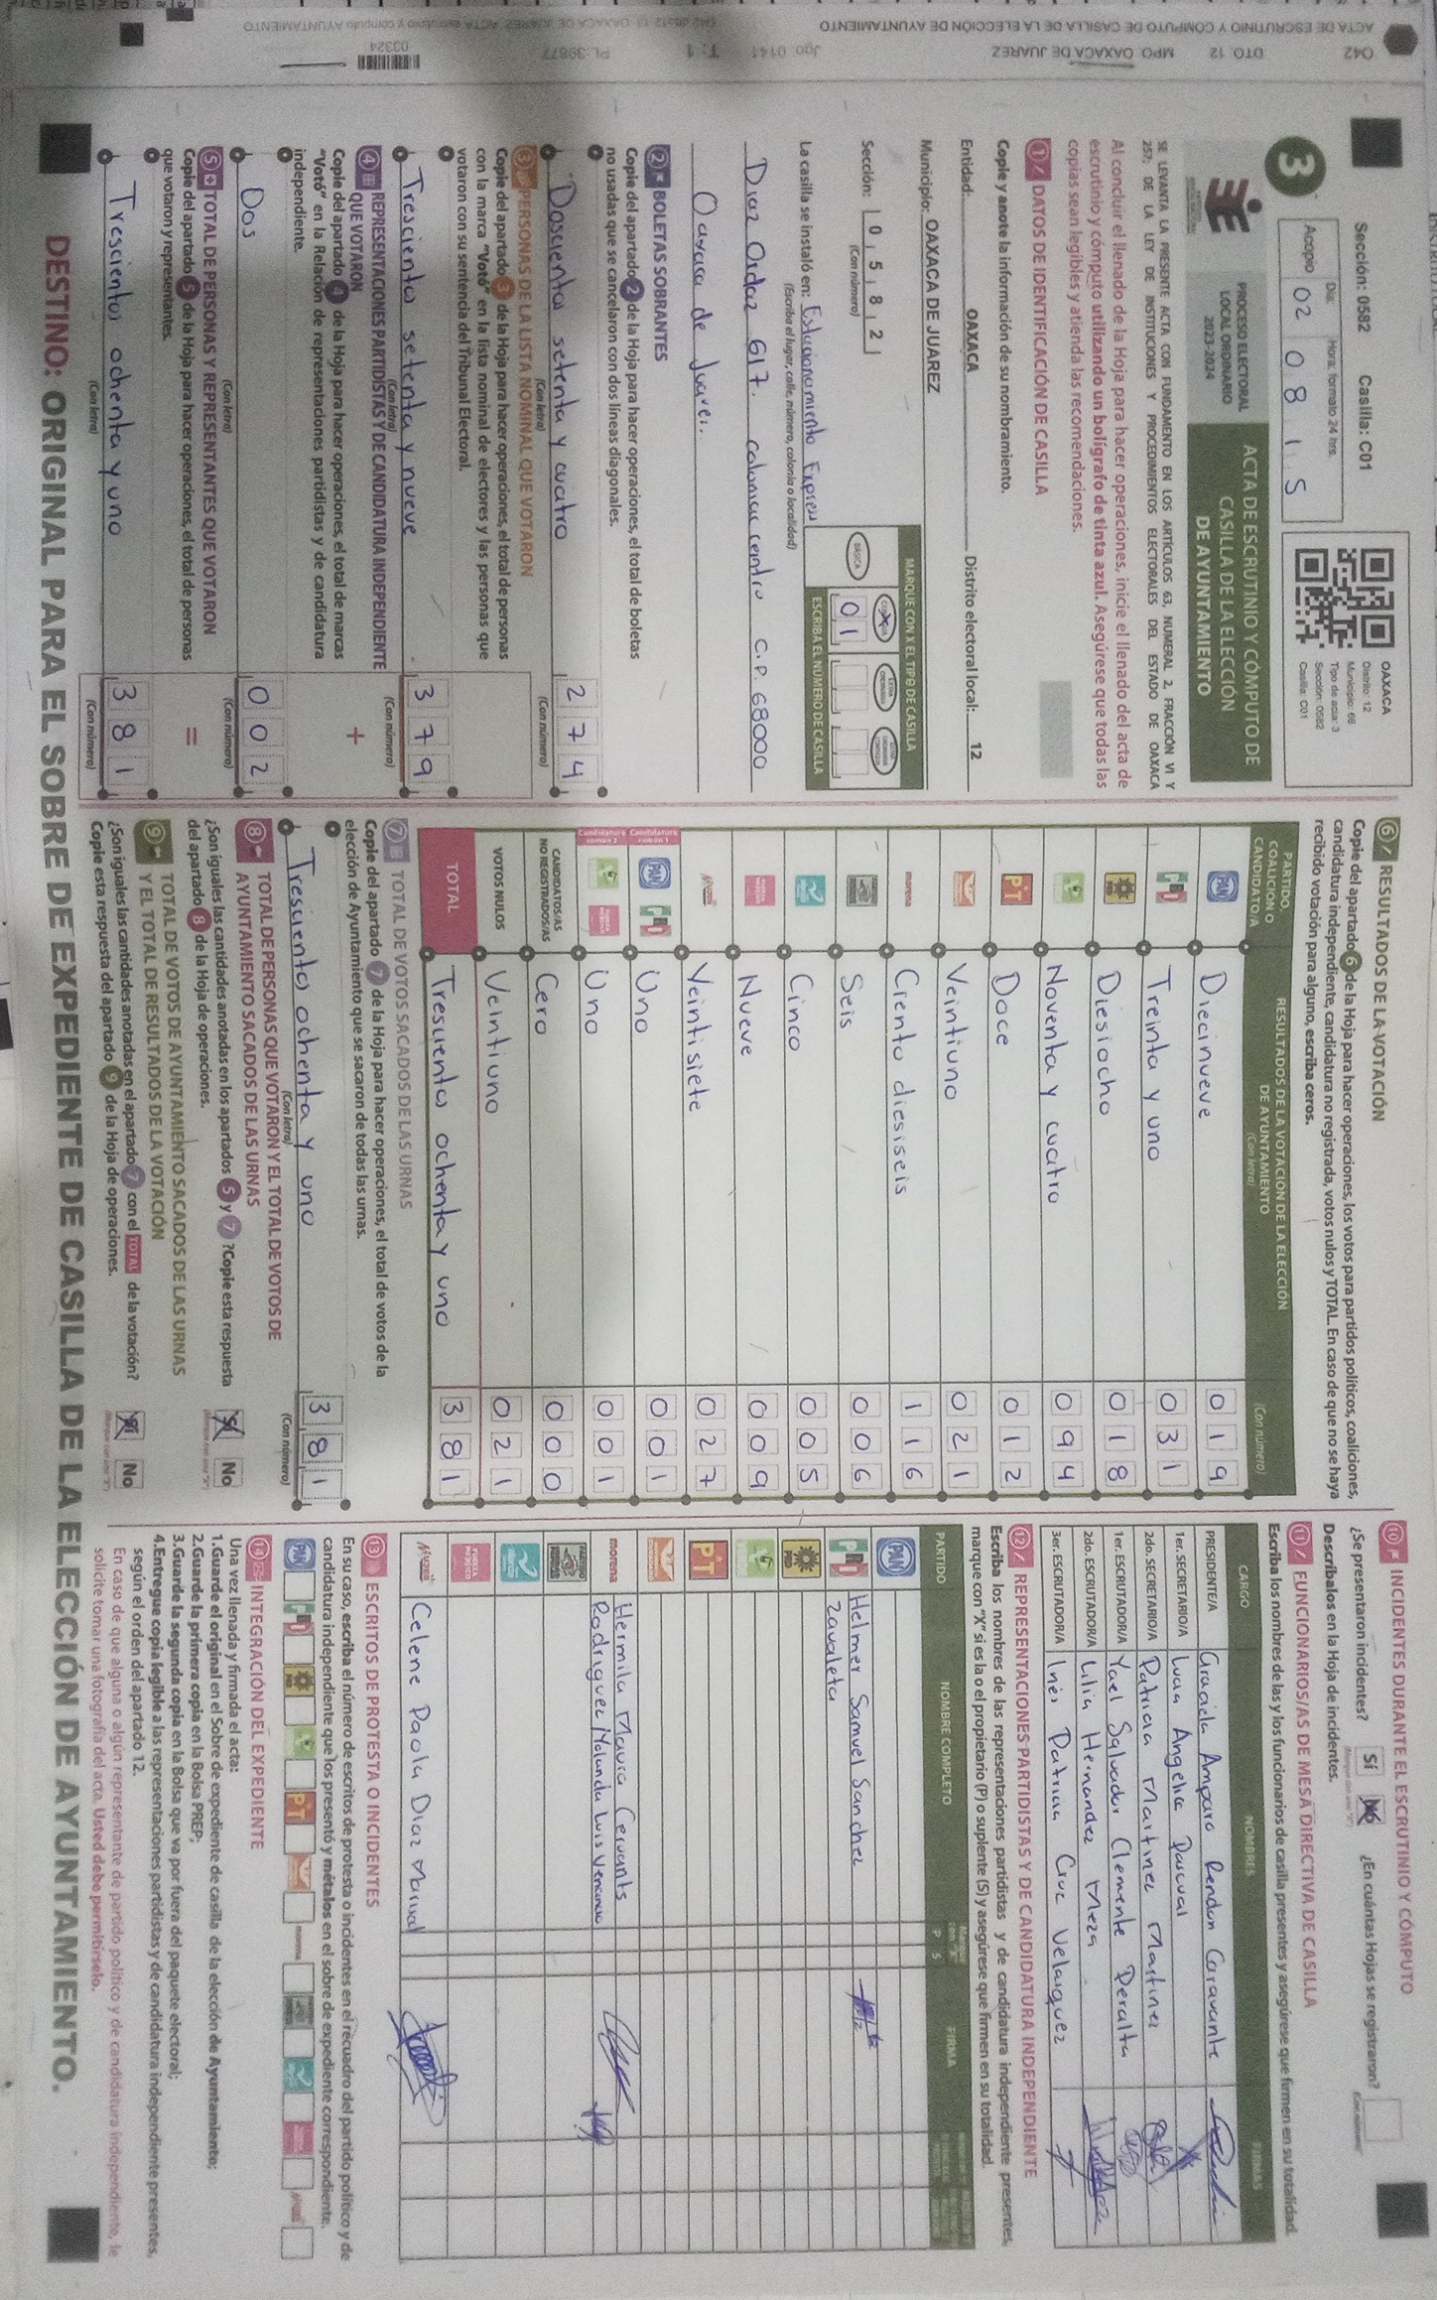 Sección: 0582 Casilla: C01
3
Acopio
Día: Hora: formato 24 hrs.
02 08 15
OAXACA
Distrito: 12
Municipio: 68
Tipo de acta: 3
Sección: 0582
Casilla: C01
PROCESO ELECTORAL
LOCAL ORDINARIO
2023-2024
ACTA DE ESCRUTINIO Y CÓMPUTO DE
CASILLA DE LA ELECCIÓN
DE AYUNTAMIENTO
SE LEVANTA LA PRESENTE ACTA CON FUNDAMENTO EN LOS ARTÍCULOS 63, NUMERAL 2, FRACCIÓN VI Y
257; DE LA LEY DE INSTITUCIONES Y PROCEDIMIENTOS ELECTORALES DEL ESTADO DE OAXACA
Al concluir el llenado de la Hoja para hacer operaciones, inicie el llenado del acta de
escrutinio y cómputo utilizando un bolígrafo de tinta azul. Asegúrese que todas las
copias sean legibles y atienda las recomendaciones.
1 DATOS DE IDENTIFICACIÓN DE CASILLA
Copie y anote la información de su nombramiento.
Entidad: OAXACA Distrito electoral local: 12
Municipio: OAXACA DE JUAREZ
Sección: 0 5 8 2
(Con número)
MARQUE CON X EL TIPO DE CASILLA
BÁSICA
01
ESCRIBA EL NÚMERO DE CASILLA
La casilla se instaló en: Estacionamiento Express
(Escriba el lugar, calle, número, colonia o localidad)
Diaz Ordaz 617. colonia centro C.P. 68000
Oaxaca de Juarez.
2 BOLETAS SOBRANTES
Copie del apartado 2 de la Hoja para hacer operaciones, el total de boletas
no usadas que se cancelaron con dos líneas diagonales.
Doscientos setenta y cuatro 274
(Con letra) (Con número)
3 PERSONAS DE LA LISTA NOMINAL QUE VOTARON
Copie del apartado 3 de la Hoja para hacer operaciones, el total de personas
con la marca "Votó" en la lista nominal de electores y las personas que
votaron con su sentencia del Tribunal Electoral.
Trescientos setenta y nueve 379
(Con letra) (Con número)
4 REPRESENTACIONES PARTIDISTAS Y DE CANDIDATURA INDEPENDIENTE
QUE VOTARON
Copie del apartado 4 de la Hoja para hacer operaciones, el total de marcas
"Votó" en la Relación de representaciones partidistas y de candidatura
independiente.
+
Dos 002
(Con letra) (Con número)
5 TOTAL DE PERSONAS Y REPRESENTANTES QUE VOTARON
Copie del apartado 5 de la Hoja para hacer operaciones, el total de personas
que votaron y representantes.
=
Trescientos ochenta y uno 381
(Con letra) (Con número)
6 RESULTADOS DE LA VOTACIÓN
Copie del apartado 6 de la Hoja para hacer operaciones, los votos para partidos políticos, coaliciones,
candidatura independiente, candidatura no registrada, votos nulos y TOTAL. En caso de que no se haya
recibido votación para alguno, escriba ceros.
PARTIDO,
COALICIÓN O
CANDIDATO/A
RESULTADOS DE LA VOTACIÓN DE LA ELECCIÓN
DE AYUNTAMIENTO
(Con letra) (Con número)
PAN Diecinueve 019
PRI Treinta y uno 031
PRD Diesiocho 018
Noventa y cuatro 094
PT Doce 012
Veintiuno 021
morena Ciento diesiseis 116
Seis 006
Cinco 005
Nueve 009
Mujer Veintisiete 027
PAN PRI Uno 001
Uno 001
CANDIDATOS/AS
NO REGISTRADOS/AS Cero 000
VOTOS NULOS Veintiuno 021
TOTAL Trescientos ochenta y uno 381
7 TOTAL DE VOTOS SACADOS DE LAS URNAS
Copie del apartado 7 de la Hoja para hacer operaciones, el total de votos de la
elección de Ayuntamiento que se sacaron de todas las urnas.
Trescientos ochenta y uno 381
(Con letra) (Con número)
8 TOTAL DE PERSONAS QUE VOTARON Y EL TOTAL DE VOTOS DE
AYUNTAMIENTO SACADOS DE LAS URNAS
¿Son iguales las cantidades anotadas en los apartados 5 y 7 ? Copie esta respuesta
del apartado 8 de la Hoja de operaciones.
Sí No
9 TOTAL DE VOTOS DE AYUNTAMIENTO SACADOS DE LAS URNAS
Y EL TOTAL DE RESULTADOS DE LA VOTACIÓN
¿Son iguales las cantidades anotadas en el apartado 7 con el TOTAL de la votación?
Copie esta respuesta del apartado 9 de la Hoja de operaciones.
Sí No
10 INCIDENTES DURANTE EL ESCRUTINIO Y CÓMPUTO
¿Se presentaron incidentes? Sí No ¿En cuántas Hojas se registraron?
Descríbalos en la Hoja de incidentes.
11 FUNCIONARIOS/AS DE MESA DIRECTIVA DE CASILLA
Escriba los nombres de las y los funcionarios de casilla presentes y asegúrese que firmen en su totalidad.
CARGO NOMBRES FIRMAS
PRESIDENTE/A Graciela Amparo Rendon Caravante
1er. SECRETARIO/A Lucia Angelica Pascual
2do. SECRETARIO/A Patricia Martinez Martinez
1er. ESCRUTADOR/A Yael Salvador Clemente Peralta
2do. ESCRUTADOR/A Lilia Hernandez Meza
3er. ESCRUTADOR/A Inés Patricia Cruz Velazquez
12 REPRESENTACIONES PARTIDISTAS Y DE CANDIDATURA INDEPENDIENTE
Escriba los nombres de las representaciones partidistas y de candidatura independiente presentes,
marque con "X" si es la o el propietario (P) o suplente (S) y asegúrese que firmen en su totalidad.
PARTIDO NOMBRE COMPLETO P S FIRMA
PAN
PRI Helmer Samuel Sanchez
Zavaleta
PRD
PT
morena Hermila Maura Cervants
Rodriguez/Yolanda Luis Venancio
Mujer Celene Paola Diaz Marisol
13 ESCRITOS DE PROTESTA O INCIDENTES
En su caso, escriba el número de escritos de protesta o incidentes en el recuadro del partido político y de
candidatura independiente que los presentó y métalos en el sobre de expediente correspondiente.
14 INTEGRACIÓN DEL EXPEDIENTE
Una vez llenada y firmada el acta:
1.Guarde el original en el Sobre de expediente de casilla de la elección de Ayuntamiento;
2.Guarde la primera copia en la Bolsa PREP;
3.Guarde la segunda copia en la Bolsa que va por fuera del paquete electoral;
4.Entregue copia legible a las representaciones partidistas y de candidatura independiente presentes,
según el orden del apartado 12.
En caso de que alguna o algún representante de partido político y de candidatura independiente, le
solicite tomar una fotografía del acta. Usted debe permitírselo.
DESTINO: ORIGINAL PARA EL SOBRE DE EXPEDIENTE DE CASILLA DE LA ELECCIÓN DE AYUNTAMIENTO.
042 DTO 12 MPO OAXACA DE JUAREZ Jgo 0141 T: 1 PL-39877 03324
ACTA DE ESCRUTINIO Y COMPUTO DE CASILLA DE LA ELECCION DE AYUNTAMIENTO